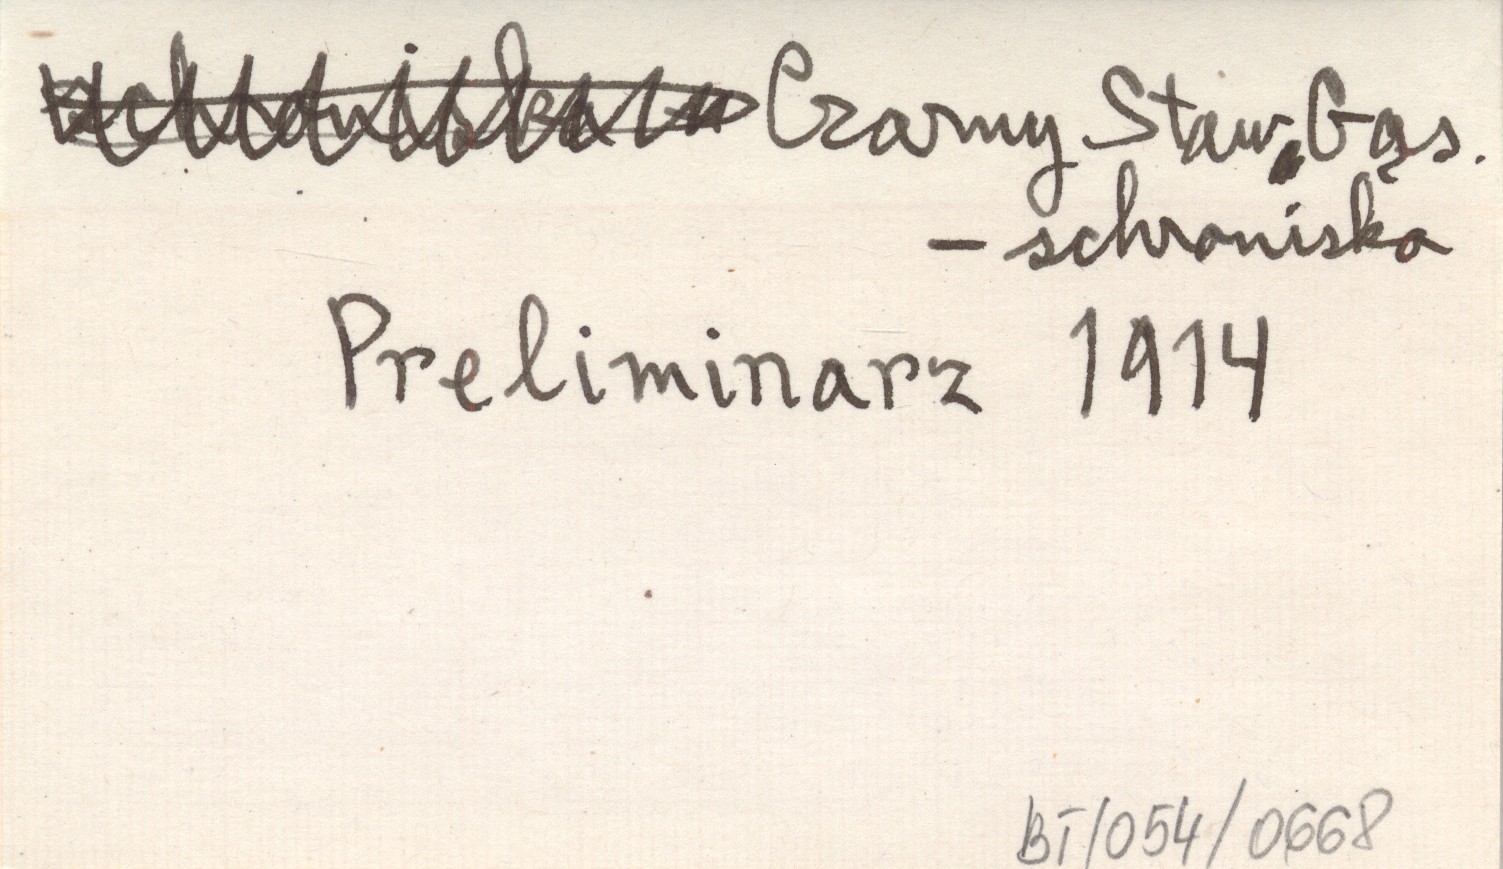 Czarny Staw Gąs.
- schroniska
Preliminarz 1914
BT/054/0668